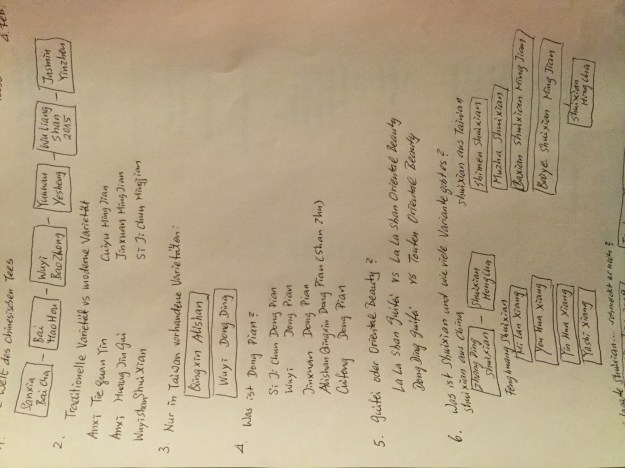 Welt des chinesischen Tees
Bai Cha - Bai Mao Hou - Wuyi Bao Zhong - Yunnan Yesheng - Wu Liang Shan 2015 - Jasmin Yinzhen
2. Traditionelle Varietät vs moderne Varietät
Anxi Tie Guan Yin Cuiyu Ming Jian
Anxi Huang Jin Gui Jinxuan Ming Jian
Wuyishan Shui Xian Si Ji Chun Mingjian
3 Nur in Taiwan vorhandene Varietäten:
Qingxin Alishan
Wuyi Dong Ding
4. Was ist Dong Pian?
Si Ji Chun Dong Pian
Wuyi Dong Pian
Jinxuan Dong Pian
Alishan Qingxin Dong Pian (Shan Zhu)
Dong Pian
5. Guifei oder Oriental Beauty?
La La Shan Guifei vs La La Shan Oriental Beauty
Dong Ding Guifei vs Touten Oriental Beauty
6. Was ist Shuixian und wie viele Variante gibt es?
Shuixian aus China Shuixian aus Taiwan
Zhang Ping Shuixian - Shuixian Hong Cha Shimen Shuixian
Fenghuang Shuixian Muzha Shuixian
Zhi Lan Xiang Baxian Shuixian Ming Jian
You Hua Xiang Baiye Shuixian Ming Jian
Yin Hua Xiang
Yashi Xiang Shuixian Hong Cha